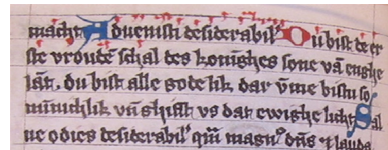 macht Aduenisti desiderabil' Du bist de er
ste vroude schal des konighes sone vā enghe
lāt. du bist alle gode lik dar vm̄e bistu so
mīnichlik vn̄ ghift vs dat ewighe licht Sal
ue o dies desiderabil' qm̄ magn' dn̄s et lauda